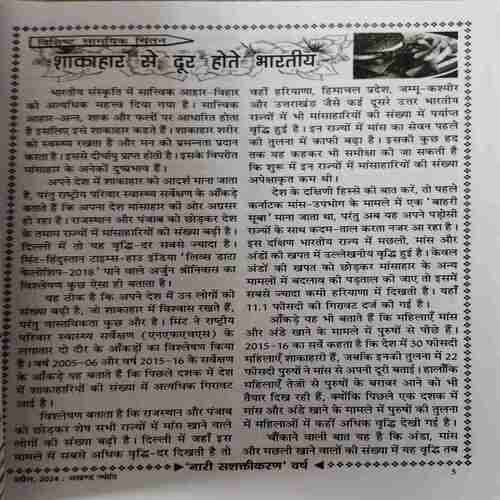 विशिष्ट सामयिक चिंतन
शाकाहार से दूर होते भारतीय
भारतीय संस्कृति में सात्त्विक आहार-विहार
को अत्यधिक महत्त्व दिया गया है। सात्त्विक
आहार-अन्न, शाक और फलों पर आधारित होता
है इसलिए इसे शाकाहार कहते हैं। शाकाहार शरीर
को स्वस्थ रखता है और मन को प्रसन्नता प्रदान
करता है। इससे दीर्घायु प्राप्त होती है। इसके विपरीत
मांसाहार के अनेकों दुष्प्रभाव हैं।
अपने देश में शाकाहार को आदर्श माना जाता
है, परंतु राष्ट्रीय परिवार स्वास्थ्य सर्वेक्षण के आँकड़े
बताते हैं कि अपना देश मांसाहार की ओर अग्रसर
हो रहा है। राजस्थान और पंजाब को छोड़कर देश
के तमाम राज्यों में मांसाहारियों की संख्या बढ़ी है।
दिल्ली में तो यह वृद्धि-दर सबसे ज्यादा है।
मिंट-हिंदुस्तान टाइम्स-हाउ इंडिया 'लिव्स डाटा
फेलोशिप-2018' पाने वाले अर्जुन श्रीनिवास का
विश्लेषण कुछ ऐसा ही बताता है।
यह ठीक है कि अपने देश में उन लोगों की
संख्या बड़ी है, जो शाकाहार में विश्वास रखते हैं,
परंतु वास्तविकता कुछ और है। मिंट ने राष्ट्रीय
परिवार स्वास्थ्य सर्वेक्षण (एनएफएचएस) के
लगातार दो दौर के आँकड़ों का विश्लेषण किया
है। वर्ष 2005-06 और वर्ष 2015-16 के सर्वेक्षण
के आँकड़े यह बताते हैं कि पिछले दशक में देश
में शाकाहारियों की संख्या में अत्यधिक गिरावट
आई है।
विश्लेषण बताता है कि राजस्थान और पंजाब
को छोड़कर शेष सभी राज्यों में मांस खाने वाले
लोगों की संख्या बढ़ी है। दिल्ली में जहाँ इस
मामले में सबसे अधिक वृद्धि-दर दिखती है तो
वहीं हरियाणा, हिमाचल प्रदेश, जम्मू-कश्मीर
और उत्तराखंड जैसे कई दूसरे उत्तर भारतीय
राज्यों में भी मांसाहारियों की संख्या में पर्याप्त
वृद्धि हुई है। इन राज्यों में मांस का सेवन पहले
की तुलना में काफी बढ़ा है। इसकी कुछ हद
तक यह कहकर भी समीक्षा की जा सकती है
कि शुरू में इन राज्यों में मांसाहारियों की संख्या
अपेक्षाकृत कम थी।
देश के दक्षिणी हिस्से की बात करें, तो पहले
कर्नाटक मांस-उपभोग के मामले में एक 'बाहरी
सूबा' माना जाता था, परंतु अब यह अपने पड़ोसी
राज्यों के साथ कदम-ताल करता नजर आ रहा है।
इस दक्षिण भारतीय राज्य में मछली, मांस और
अंडों की खपत में उल्लेखनीय वृद्धि हुई है। केवल
अंडों की खपत को छोड़कर मांसाहार के अन्य
मामलों में बदलाव की पड़ताल की जाए तो इसमें
सबसे ज्यादा कमी हरियाणा में दिखती है। यहाँ
11.1 फीसदी की गिरावट दर्ज की गई है।
आँकड़े यह भी बताते हैं कि महिलाएँ मांस
और अंडे खाने के मामले में पुरुषों से पीछे हैं।
2015-16 का सर्वे कहता है कि देश में 30 फीसदी
महिलाएँ शाकाहारी हैं, जबकि इनकी तुलना में 22
फीसदी पुरुषों ने मांस से अपनी दूरी बताई। हालाँकि
महिलाएँ तेजी से पुरुषों के बराबर आने को भी
तैयार दिख रही हैं, क्योंकि पिछले एक दशक में
मांस और अंडे खाने के मामले में पुरुषों की तुलना
में महिलाओं में कहीं अधिक वृद्धि देखी गई है।
चौंकाने वाली बात यह है कि अंडा, मांस
और मछली खाने वालों की संख्या में यह वृद्धि तब
'नारी सशक्तीकरण' वर्ष
अप्रैल, 2024 : अखण्ड ज्योति
5